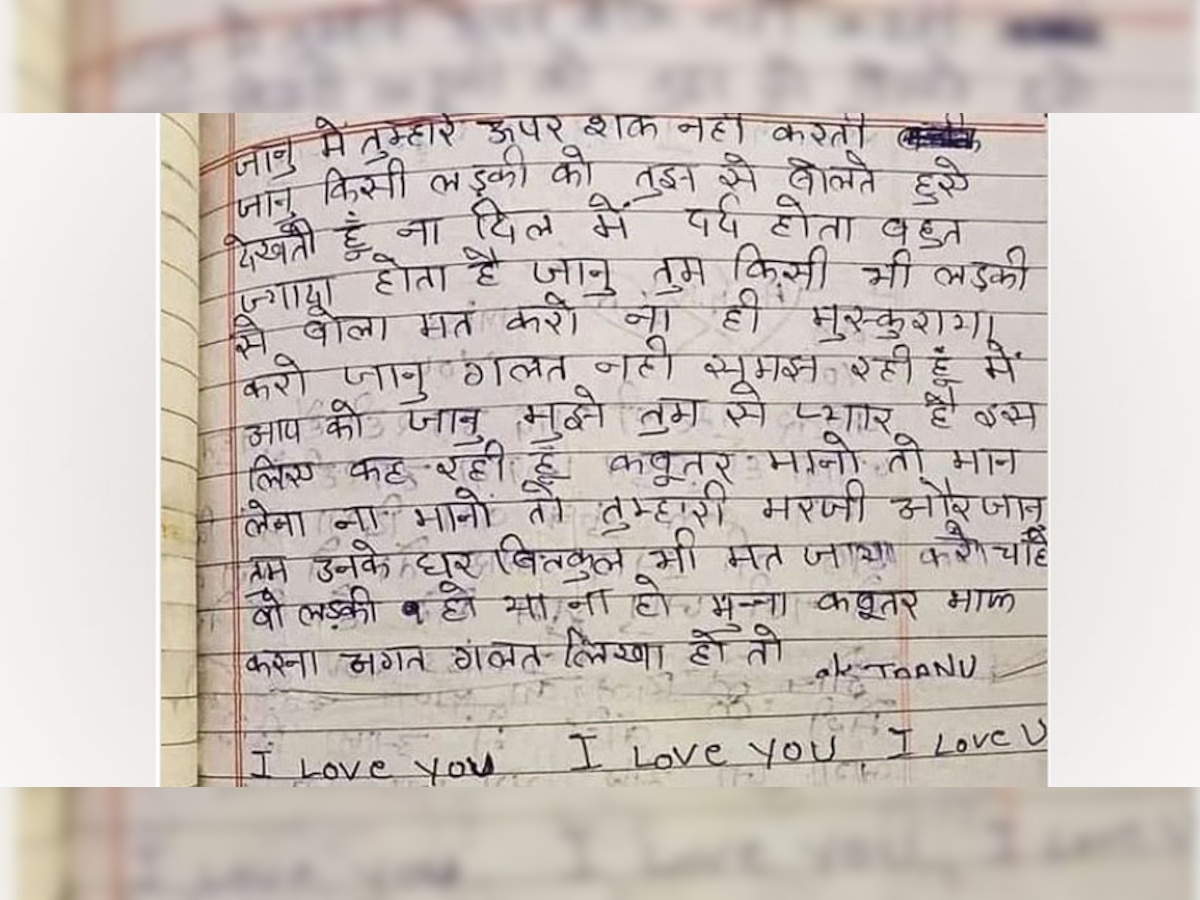 जानु मे तुम्हारे ऊपर शक नही करती
जानू किसी लड़की को तुझ से बोलते हुऐ
देखती हूँ ना दिल में दर्द होता बहुत
ज्यादा होता है जानु तुम किसी भी लड़की
से बोला मत करो ना ही मुस्कुराया
करो जानु गलत नही समझ रही हूँ में
आप को जानु मुझे तुम से प्यार है इस
लिए कह रही हूँ कबूतर मानो तो मान
लेना ना मानो तो तुम्हारी मरजी और जानु
तुम उनके घर बिलकुल भी मत जाया करो चाहे
वो लड़की हो या ना हो मुन्ना कबूतर माफ
करना अगत गलत लिखा हो तो
I Love you I Love you I Love U